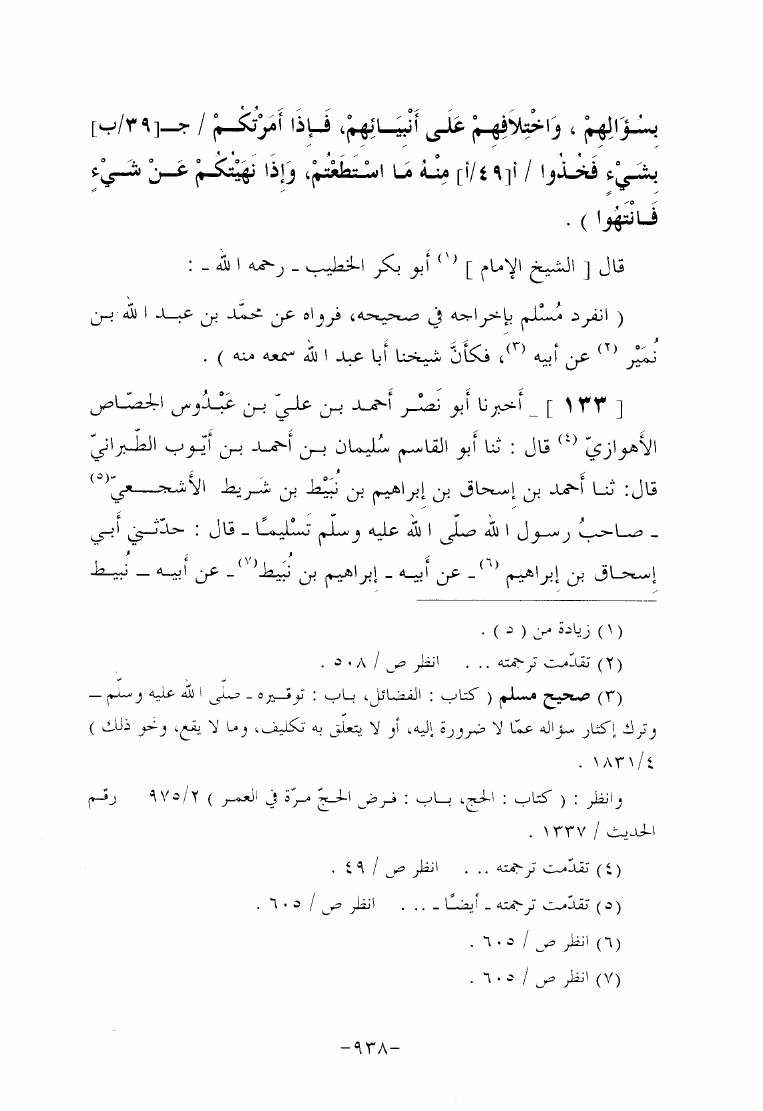 بِسُؤَالِهِمْ ، وَاخْتِلَافِهِمْ عَلَى أَنْبِيَائِهِمْ، فَإِذَا أَمَرْتُكُمْ / جـ[٣٩/ب]
بِشَيْءٍ فَخُذُوا / أ[٤٩/أ] مِنْهُ مَا اسْتَطَعْتُمْ، وَإِذَا نَهَيْتُكُمْ عَنْ شَيْءٍ
فَانْتَهُوا ) .
قال [ الشيخ الإمام ] (١) أبو بكر الخطيب ـ رحمه الله ـ :
( انفرد مُسْلم بإخراجه في صحيحه، فرواه عن محمَّد بن عبد الله بن
نُمَيْر (٢) عن أبيه (٣)، فكأنَّ شيخنا أبا عبد الله سمعه منه ) .
[ ١٣٣ ] _ أخبرنا أبو نَصْر أحمد بن عليّ بن عَبْدُوس الجصّاص
الأهوازيّ (٤) قال : ثنا أبو القاسم سُليمان بن أحمد بن أيّوب الطّبرانيّ
قال: ثنا أحمد بن إسحاق بن إبراهيم بن نُبَيْط بن شريط الأشجعيّ(٥)
ـ صاحبُ رسول الله صلّى الله عليه وسلّم تَسْليمًا ـ قال : حدّثني أبي
إسحاق بن إبراهيم (٦) ـ عن أبيه ـ إبراهيم بن نُبَيط(٧) ـ عن أبيه ـ نُبيط
(١) زيادة من ( د ) .
(٢) تقدّمت ترجمته ... انظر ص / ٥٠٨ .
(٣) صحيح مسلم ( كتاب : الفضائل، باب : توقيره ـ صلّى الله عليه وسلّم ـ
وترك إكثار سؤاله عمّا لا ضرورة إليه، أو لا يتعلّق به تكليف، وما لا يقع، ونحو ذلك )
٤/١٨٣١ .
وانظر : ( كتاب : الحج، باب : فرض الحجّ مرّة في العمر ) ٢/٩٧٥ رقم
الحديث / ١٣٣٧ .
(٤) تقدّمت ترجمته ... انظر ص / ٤٩ .
(٥) تقدّمت ترجمته ـ أيضًا ـ ... انظر ص / ٦٠٥ .
(٦) انظر ص / ٦٠٥ .
(٧) انظر ص / ٦٠٥ .
-٩٣٨-